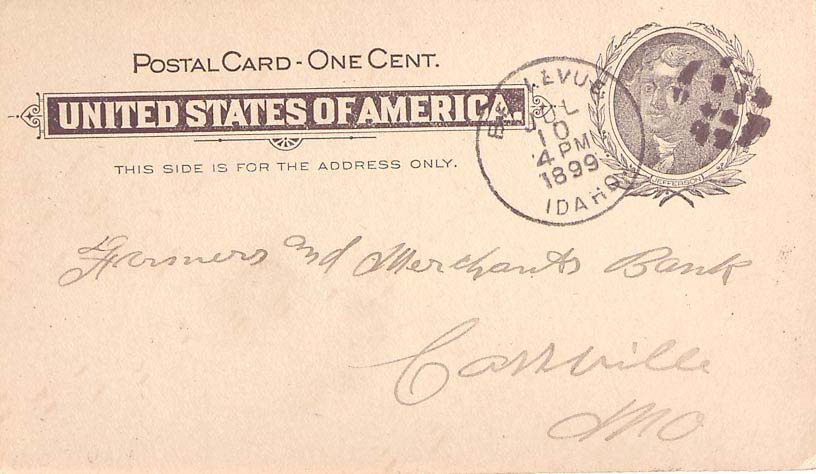 POSTAL CARD - ONE CENT.
UNITED STATES OF AMERICA.
THIS SIDE IS FOR THE ADDRESS ONLY.
BELLEVUE
JUL
10
4 PM
1899
IDAHO
JEFFERSON
Farmers and Merchants Bank
Cassville
MO